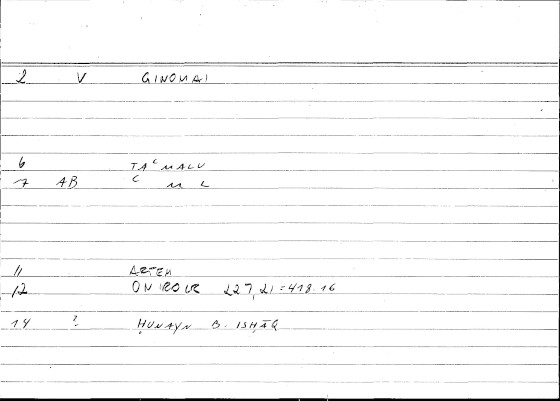 2 V GINOMAI
6 TAᶜMALU
7 AB ᶜ M L
11 ARTEM
12 ONIROCR 227,21=418.16
14 ? ḤUNAYN B. ISḤĀQ